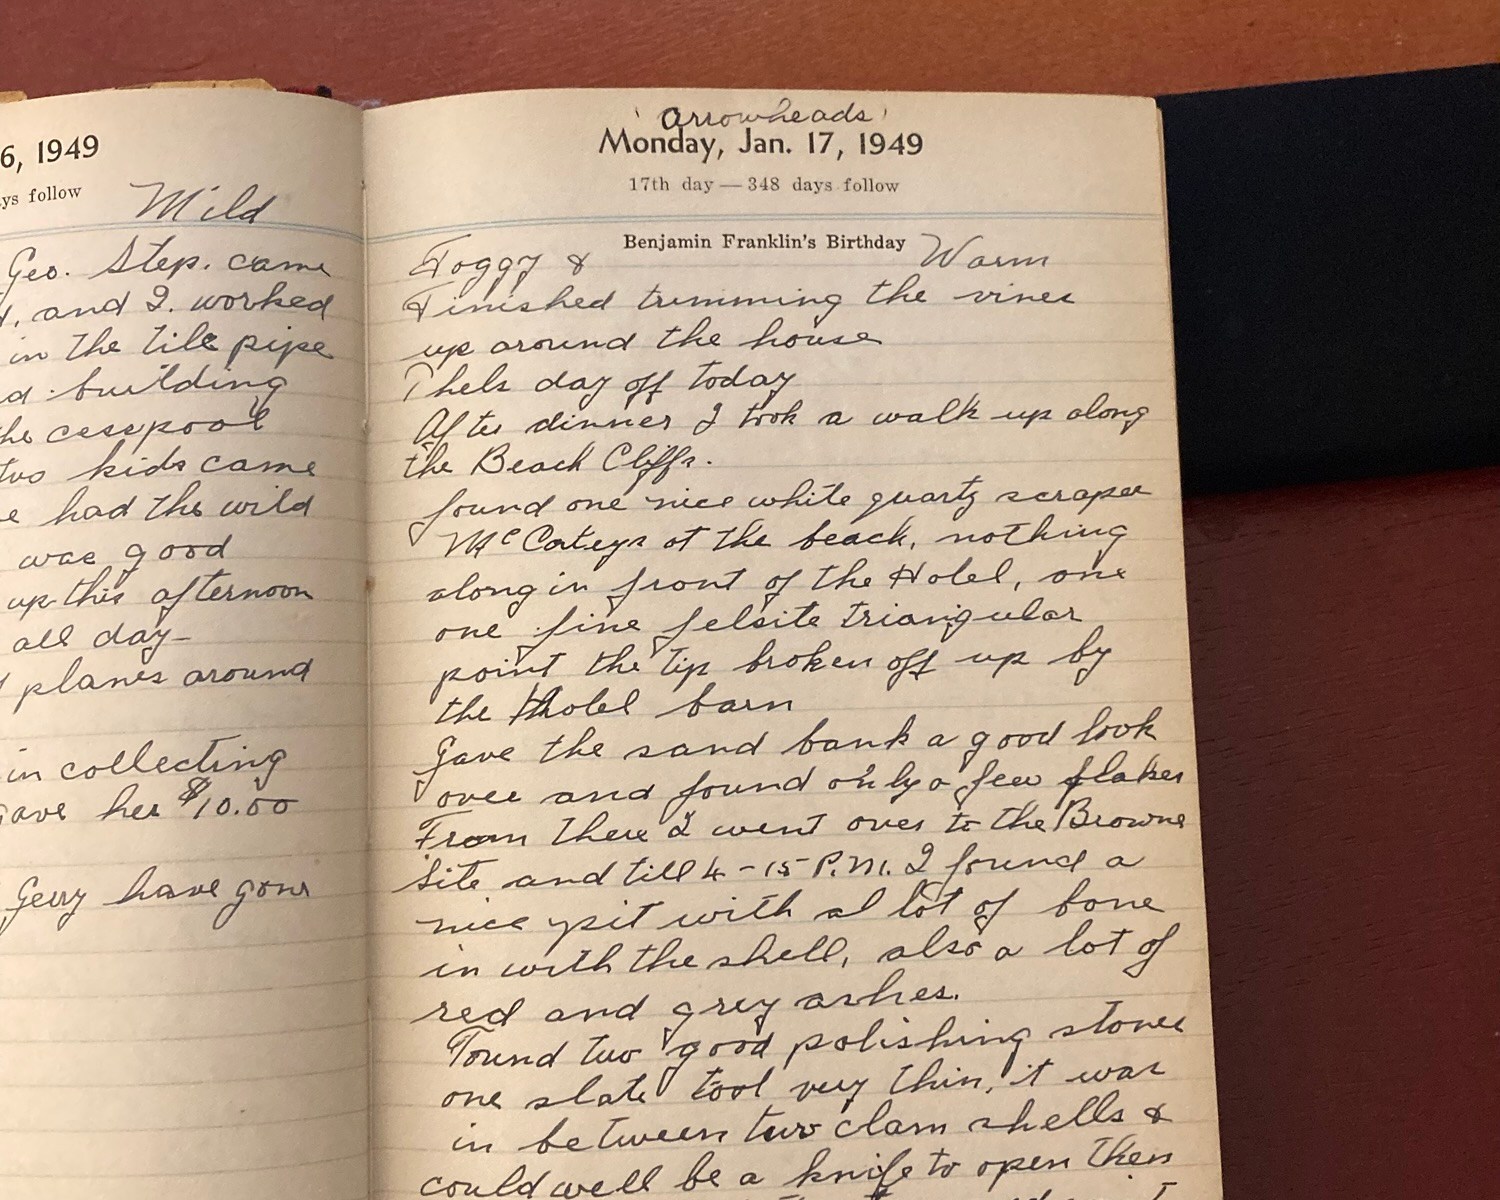 6, 1949
ys follow
Mild
Geo. Step. came
and I. worked
in the tile pipe
building
the cesspool
two kids came
had the wild
was good
up this afternoon
all day
planes around
in collecting
gave her $10.00
Gerry have gone
'Arrowheads'
Monday, Jan. 17, 1949
17th day — 348 days follow
Benjamin Franklin's Birthday
Foggy & Warm
Finished trimming the vines
up around the house
Thels day off today
After dinner I took a walk up along
the Beach Cliffs.
found one nice white quartz scraper
at the beach, nothing
along in front of the Hotel, one
one fine felsite triangular
point the tip broken off up by
the Hotel barn
Gave the sand bank a good look
over and found only a few flakes
From there I went over to the Browne
Site and till 4-15 P.M. I found a
nice pit with a lot of bone
in with the shell, also a lot of
red and grey ashes.
Found two good polishing stones
one slate tool very thin, it was
in between two clam shells &
could well be a knife to open then